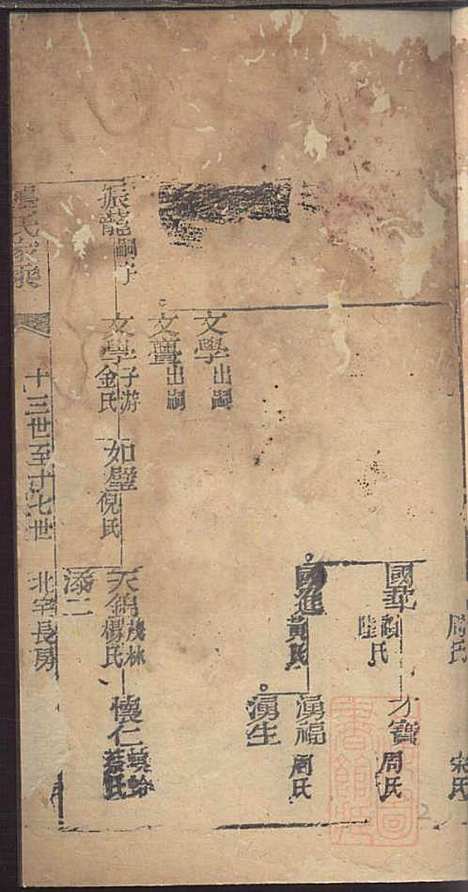 周氏
宋氏
國
陸氏
才寶
周氏
國進
黃氏
湧福
周氏
湧生
文學 出嗣
文 出嗣
振龍 嗣子
文學 子游
金氏
如璧
倪氏
天錦 茂林
楊氏
懷仁
添二
氏家
十三世至十七世 北宅長房